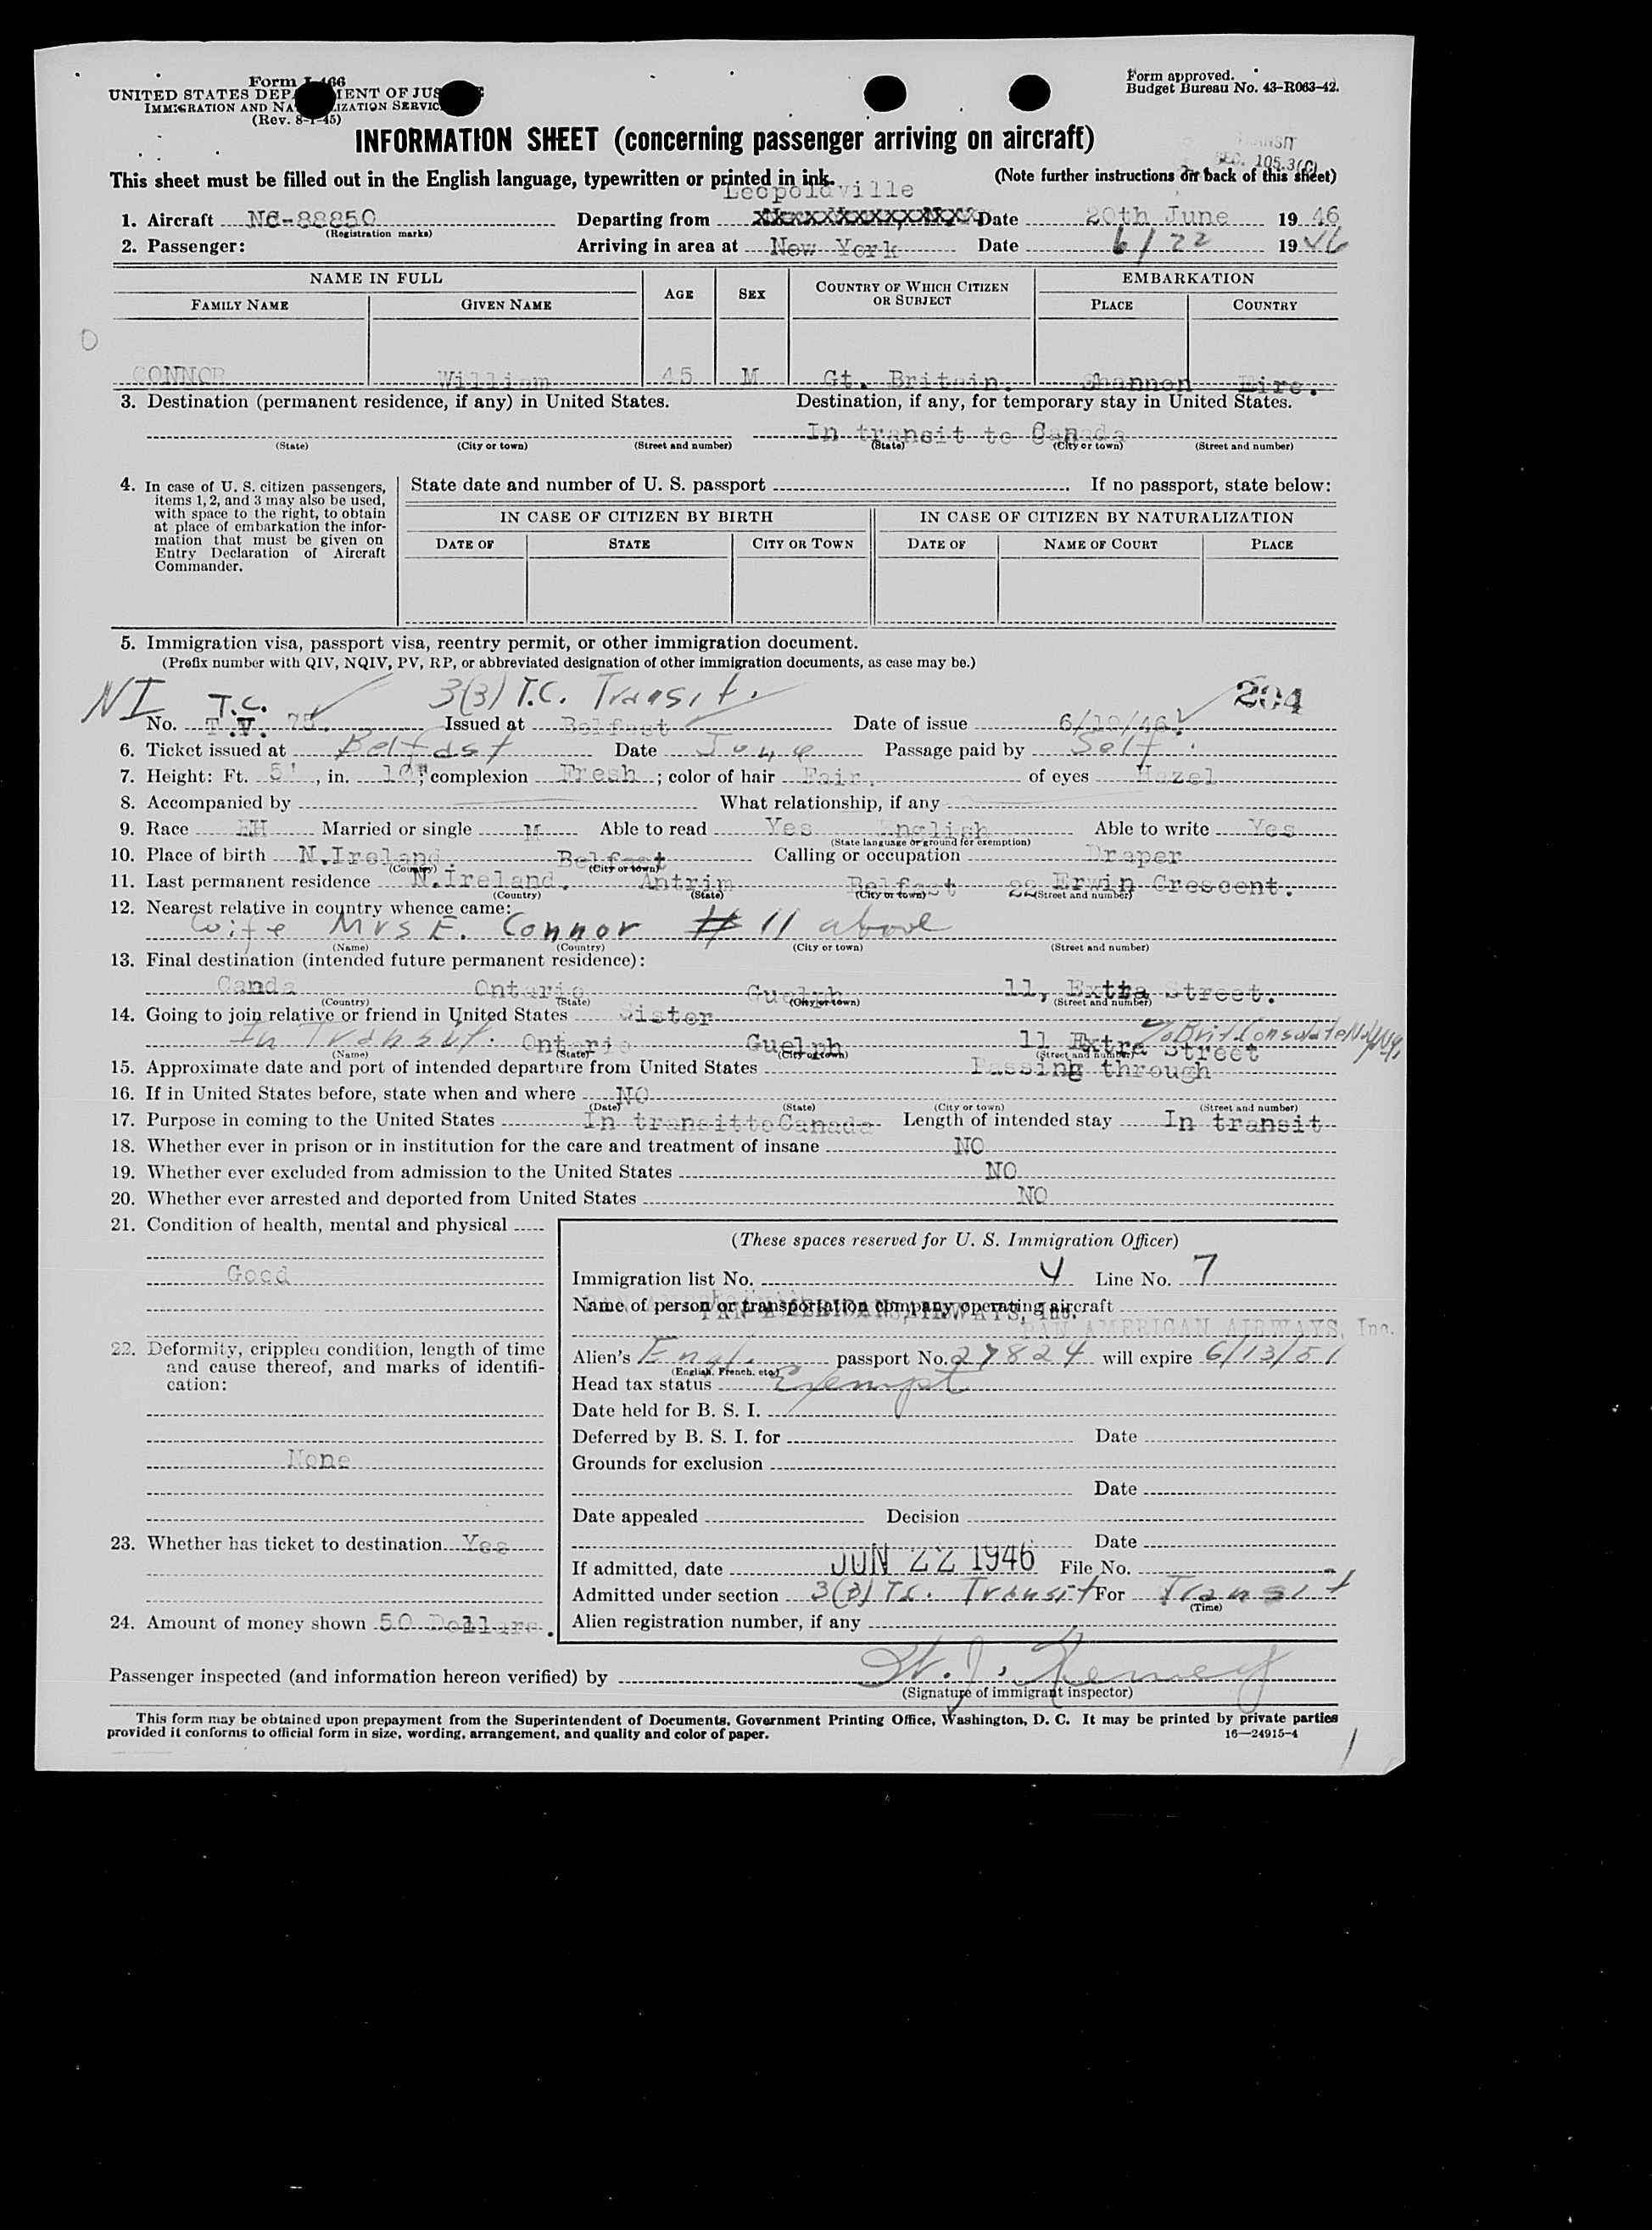 UNITED STATES DEP MENT OF JUS
(Rev. 8-1-45)
Form approved.
Budget Bureau No. 43-R063-42.
INFORMATION SHEET (concerning passenger arriving on aircraft)
105.3(C)
This sheet must be filled out in the English language, typewritten or printed in ink. (Note further instructions on back of this sheet)
Leopoldville
1. Aircraft NC-88850 Departing from Date 20th June 1946
(Registration marks)
2. Passenger: Arriving in area at New York Date 6/22 1946
NAME IN FULL AGE SEX COUNTRY OF WHICH CITIZEN OR SUBJECT EMBARKATION
FAMILY NAME GIVEN NAME PLACE COUNTRY
CONNOR William 45 M Gt. Britain. Shannon Eire.
3. Destination (permanent residence, if any) in United States. Destination, if any, for temporary stay in United States.
In transit to Canada
(State) (City or town) (Street and number) (State) (City or town) (Street and number)
4. In case of U. S. citizen passengers, items 1, 2, and 3 may also be used, with space to the right, to obtain at place of embarkation the information that must be given on Entry Declaration of Aircraft Commander.
State date and number of U. S. passport If no passport, state below:
IN CASE OF CITIZEN BY BIRTH IN CASE OF CITIZEN BY NATURALIZATION
DATE OF STATE CITY OR TOWN DATE OF NAME OF COURT PLACE
5. Immigration visa, passport visa, reentry permit, or other immigration document.
(Prefix number with QIV, NQIV, PV, RP, or abbreviated designation of other immigration documents, as case may be.)
NI T.C. 3(3) T.C. Transit. 204
No. T.V. 75. Issued at Belfast Date of issue 6/19/46.
6. Ticket issued at Belfast Date June Passage paid by Self.
7. Height: Ft. 5', in. 10"; complexion Fresh; color of hair Fair. of eyes Hazel
8. Accompanied by What relationship, if any
9. Race EH Married or single M Able to read Yes English Able to write Yes
(State language or ground for exemption)
10. Place of birth N.Ireland. Belfast Calling or occupation Draper
(Country) (City or town)
11. Last permanent residence N.Ireland. Antrim Belfast 22 Erwin Crescent.
(Country) (State) (City or town) (Street and number)
12. Nearest relative in country whence came:
Wife Mrs E. Connor # 11 above
(Name) (Country) (City or town) (Street and number)
13. Final destination (intended future permanent residence):
Canda Ontario Guelph 11, Extra Street.
(Country) (State) (City or town) (Street and number)
14. Going to join relative or friend in United States Sister
In Transit. Ontario Guelph 11 Extra Street % Brit Consulate
(Name) (State) (City or town) (Street and number)
15. Approximate date and port of intended departure from United States Passing through
16. If in United States before, state when and where NO
(Date) (State) (City or town) (Street and number)
17. Purpose in coming to the United States In transit to Canada Length of intended stay In transit
18. Whether ever in prison or in institution for the care and treatment of insane NO
19. Whether ever excluded from admission to the United States NO
20. Whether ever arrested and deported from United States NO
21. Condition of health, mental and physical
Good
22. Deformity, crippled condition, length of time and cause thereof, and marks of identification:
None
23. Whether has ticket to destination Yes
24. Amount of money shown 50 Dollars.
(These spaces reserved for U. S. Immigration Officer)
Immigration list No. 4 Line No. 7
Name of person or transportation company operating aircraft
PAN AMERICAN AIRWAYS, Inc.
PAN AMERICAN AIRWAYS, Inc.
Alien's Engl. passport No. 27824 will expire 6/13/51
(English, French, etc.)
Head tax status Exempt
Date held for B. S. I.
Deferred by B. S. I. for Date
Grounds for exclusion
Date
Date appealed Decision
Date
If admitted, date JUN 22 1946 File No.
Admitted under section 3(3) T.C. Transit For Transit
(Time)
Alien registration number, if any
Passenger inspected (and information hereon verified) by
(Signature of immigrant inspector)
This form may be obtained upon prepayment from the Superintendent of Documents, Government Printing Office, Washington, D. C. It may be printed by private parties
provided it conforms to official form in size, wording, arrangement, and quality and color of paper. 16—24915-4